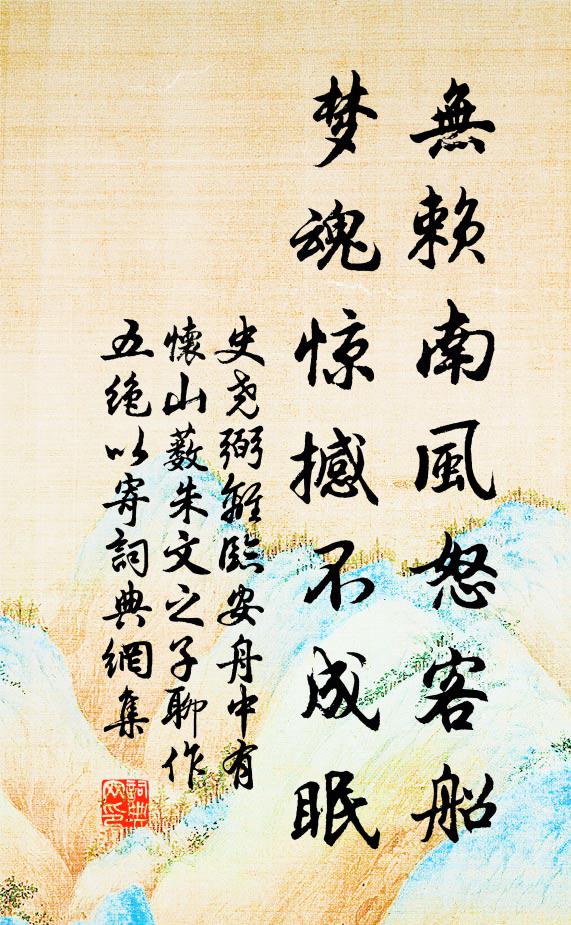 無賴南風怒客船
梦魂惊撼不成眠
史尧弼離臨安舟中有
懷山薮朱文之子聊作
五絶以寄詞典網集
詞典